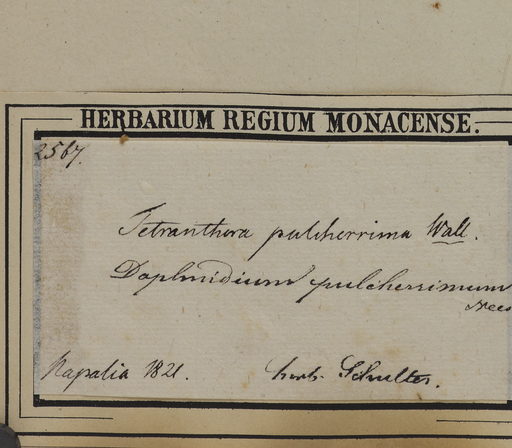 HERBARIUM REGIUM MONACENSE.
2567.
Tetranthera pulcherrima Wall.
Daphnidium pulcherrimum
Nees
Napalia 1821.
herb. Schultes.